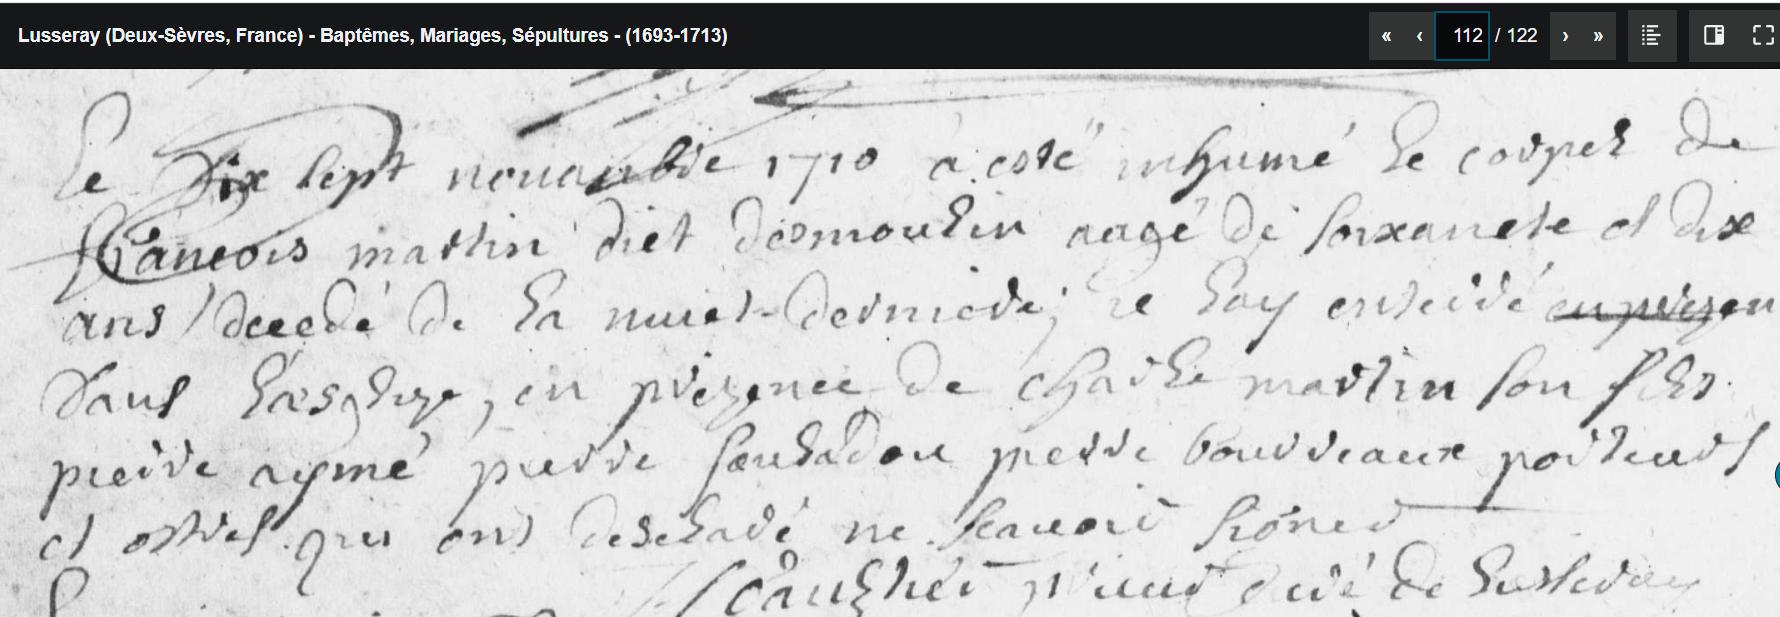 Lusseray (Deux-Sèvres, France) - Baptêmes, Mariages, Sépultures - (1693-1713)
« ‹ 112 / 122 › »
Le Dix sept nouanbre 1710 a esté inhumé le corpez de
François martin diet desmoulin aagé de soixanete et dix
ans / decedé de la nuiet derniere; je lay enteré en prezen
dans l'esglize, en prezence de charle martin son fils
pierre aymé pierre pierre bourdeaux porteurs
et ostres qui ont desclaré ne scauoir signer
prieur curé de Lusseray